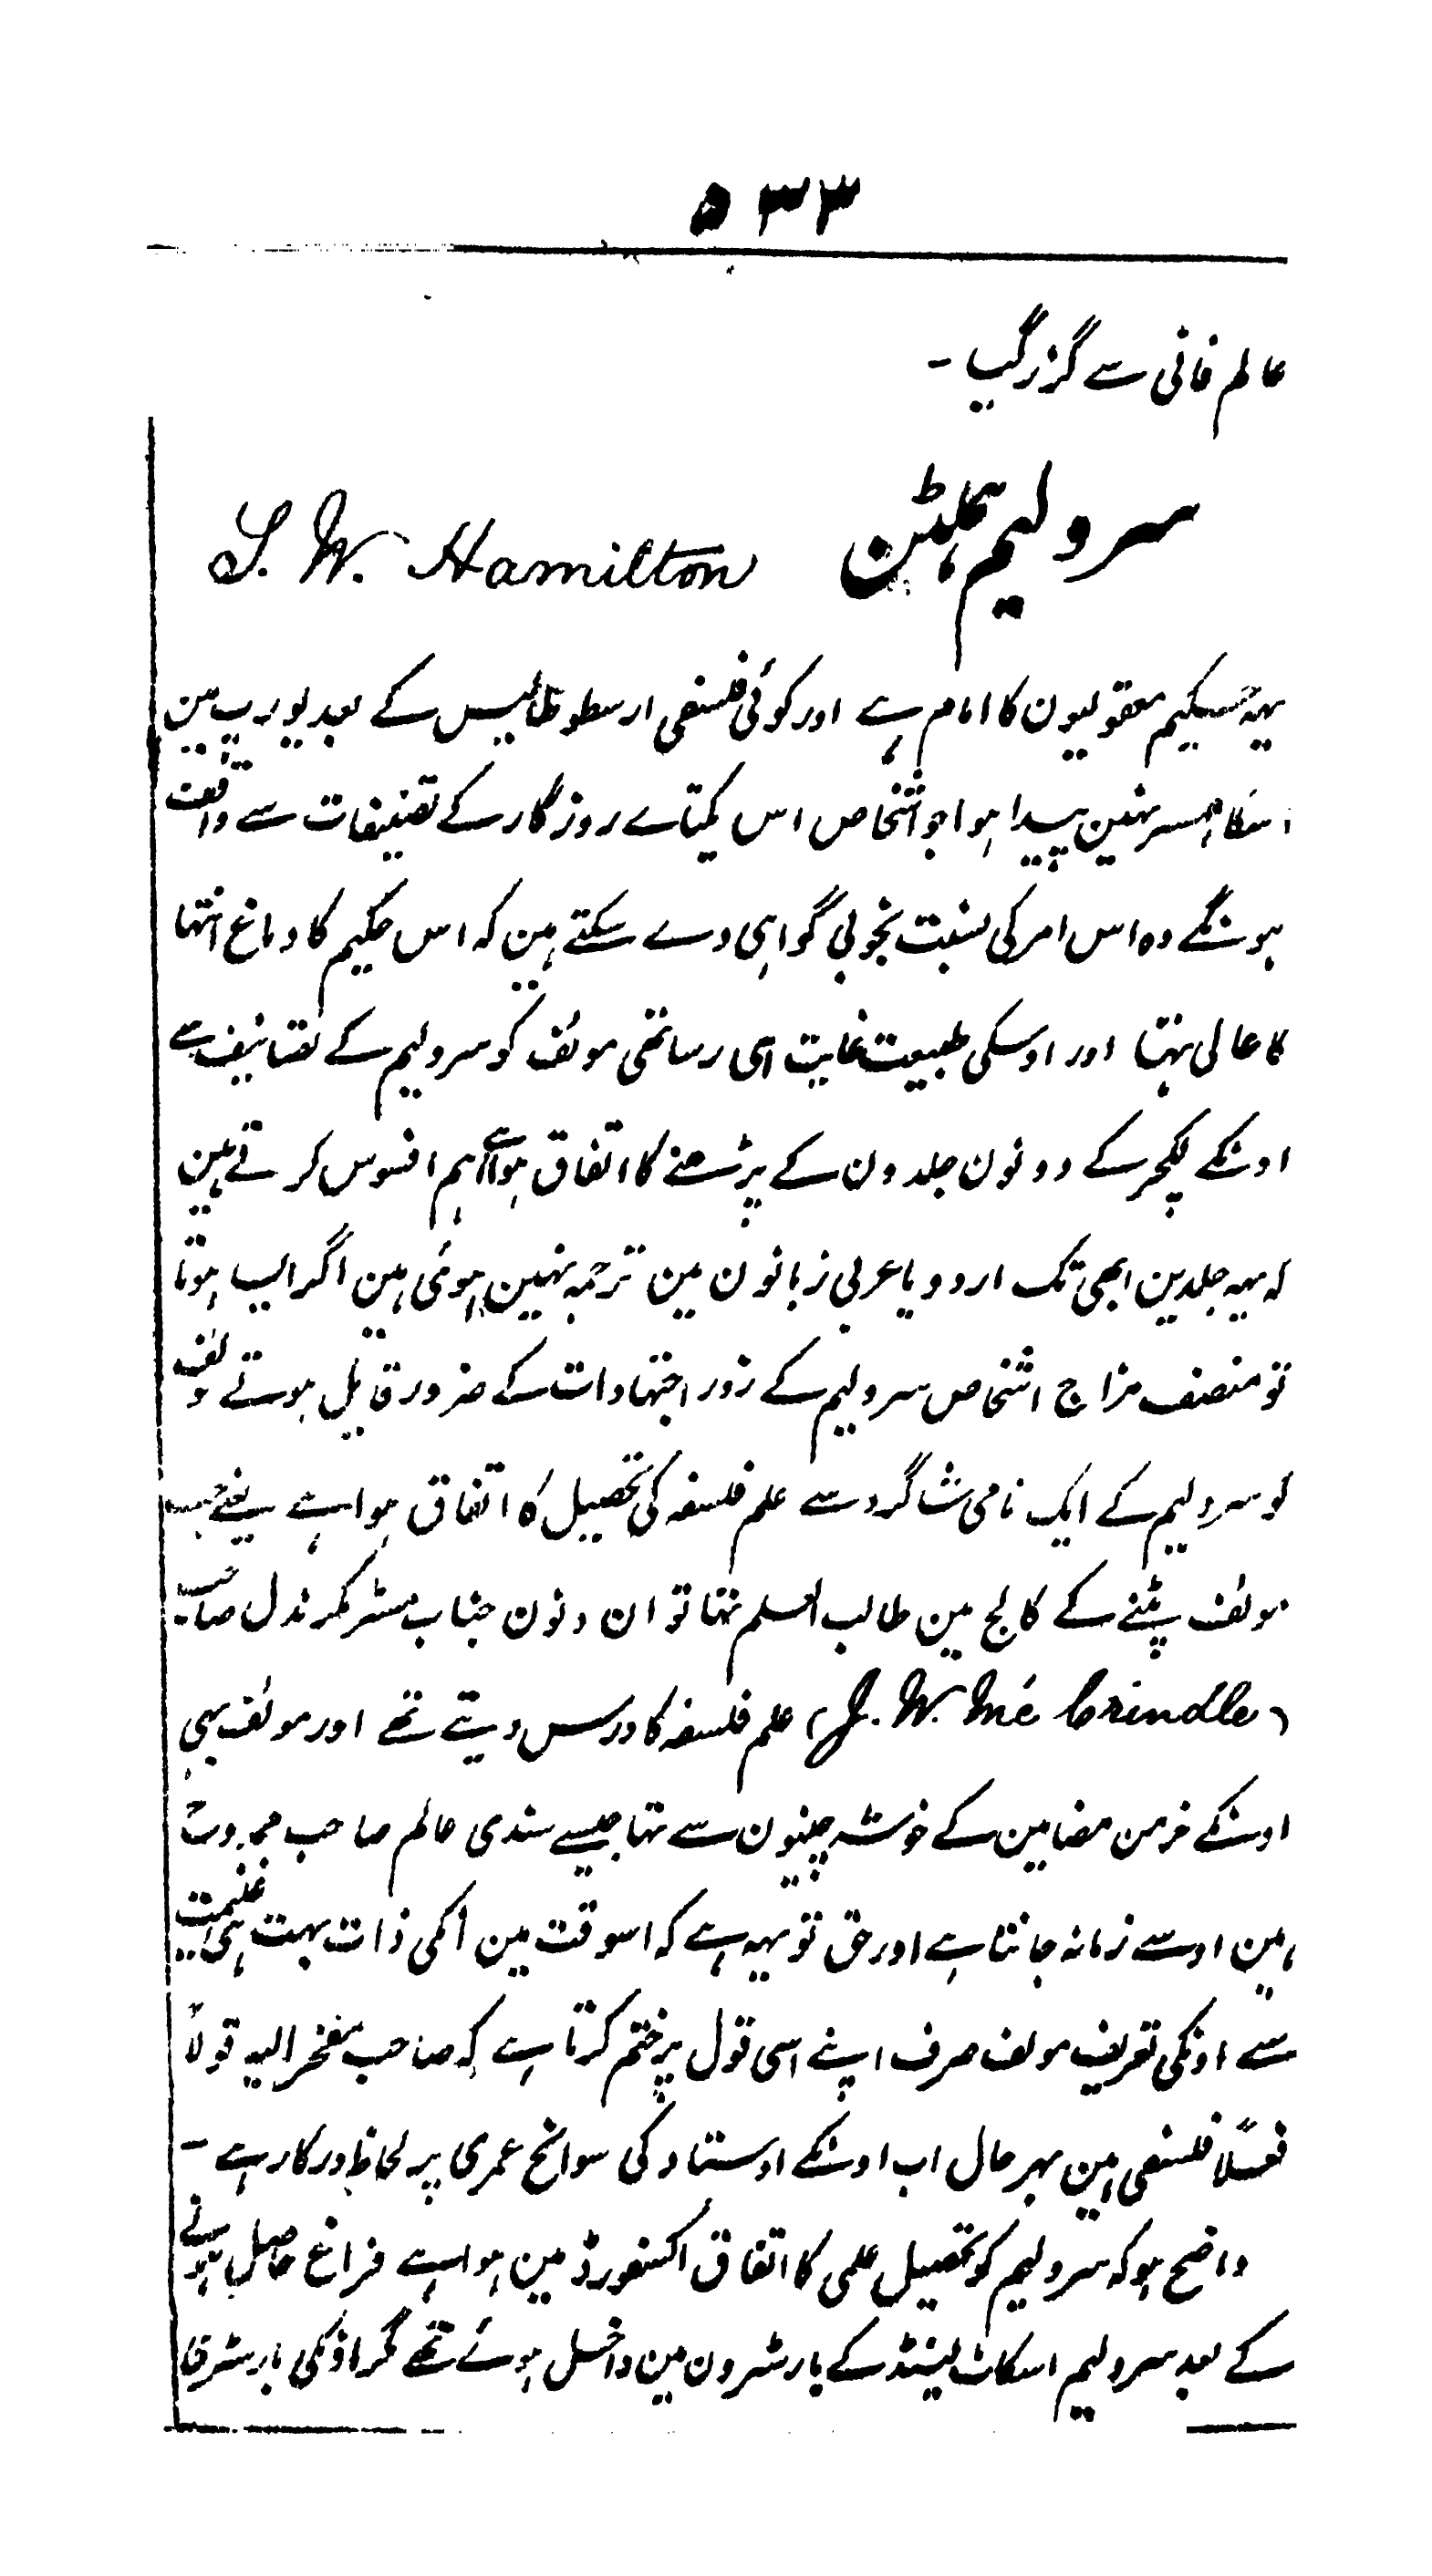 ۵۳۳
عالم فانی سے گزر گیا ۔
سر ولیم ہملٹن S. W. Hamilton
یہہ حکیم معقولیون کا امام ہے اور کوئی فلسفی ارسطوطالیس کے بعد یورپ مین
اسکا ہمسر نہین پیدا ہوا جو اشخاص اس یکتاے روزگار کے تصنیفات سے واقف
ہونگے وہ اس امر کی نسبت بخوبی گواہی دے سکتے ہین کہ اس حکیم کا دماغ انتہا
کا عالی تہا اور اوسکی طبیعت غایت ہی رسا تھی مولف کو سر ولیم کے تصانیف سے
اونکے لکچر کے دونون جلدون کے پڑھنے کا اتفاق ہوا ہے ہم افسوس کرتے ہین
کہ یہہ جلدین ابھی تک اردو یا عربی زبانون مین ترجمہ نہین ہوئی ہین اگر ایسا ہوتا
تو منصف مزاج اشخاص سر ولیم کے زور اجتہادات کے ضرور قایل ہوتے مولف
کو سر ولیم کے ایک نامی شاگرد سے علم فلسفہ کی تحصیل کا اتفاق ہوا ہے یعنے جب
مولف پٹنے کے کالج مین طالب العلم تہا تو ان دنون جناب مسٹر مکرندل صاحب
(J. W. Mc Crindle) علم فلسفہ کا درس دیتے تھے اور مولف بہی
اونکے خرمن مضامین کے خوشہ چینون سے تہا جیسے سندی عالم صاحب ممدوح
ہین اوسے زمانہ جانتا ہے اور حق تو یہہ ہے کہ اسوقت مین انکی ذات بہت ہی غنیمت
ہے اونکی تعریف مولف صرف اپنے اسی قول پر ختم کرتا ہے کہ صاحب مفخر الیہ قولاً
فعلاً فلسفی ہین بہر حال اب اونکے اوستاد کی سوانح عمری پر لحاظ درکار ہے ۔
واضح ہو کہ سر ولیم کو تحصیل علمی کا اتفاق اکسفورڈ مین ہوا ہے فراغ حاصل ہونے
کے بعد سر ولیم اسکاٹ لینڈ کے بارسٹرون مین داخل ہوئے تھے مگر اونکی بارسٹر